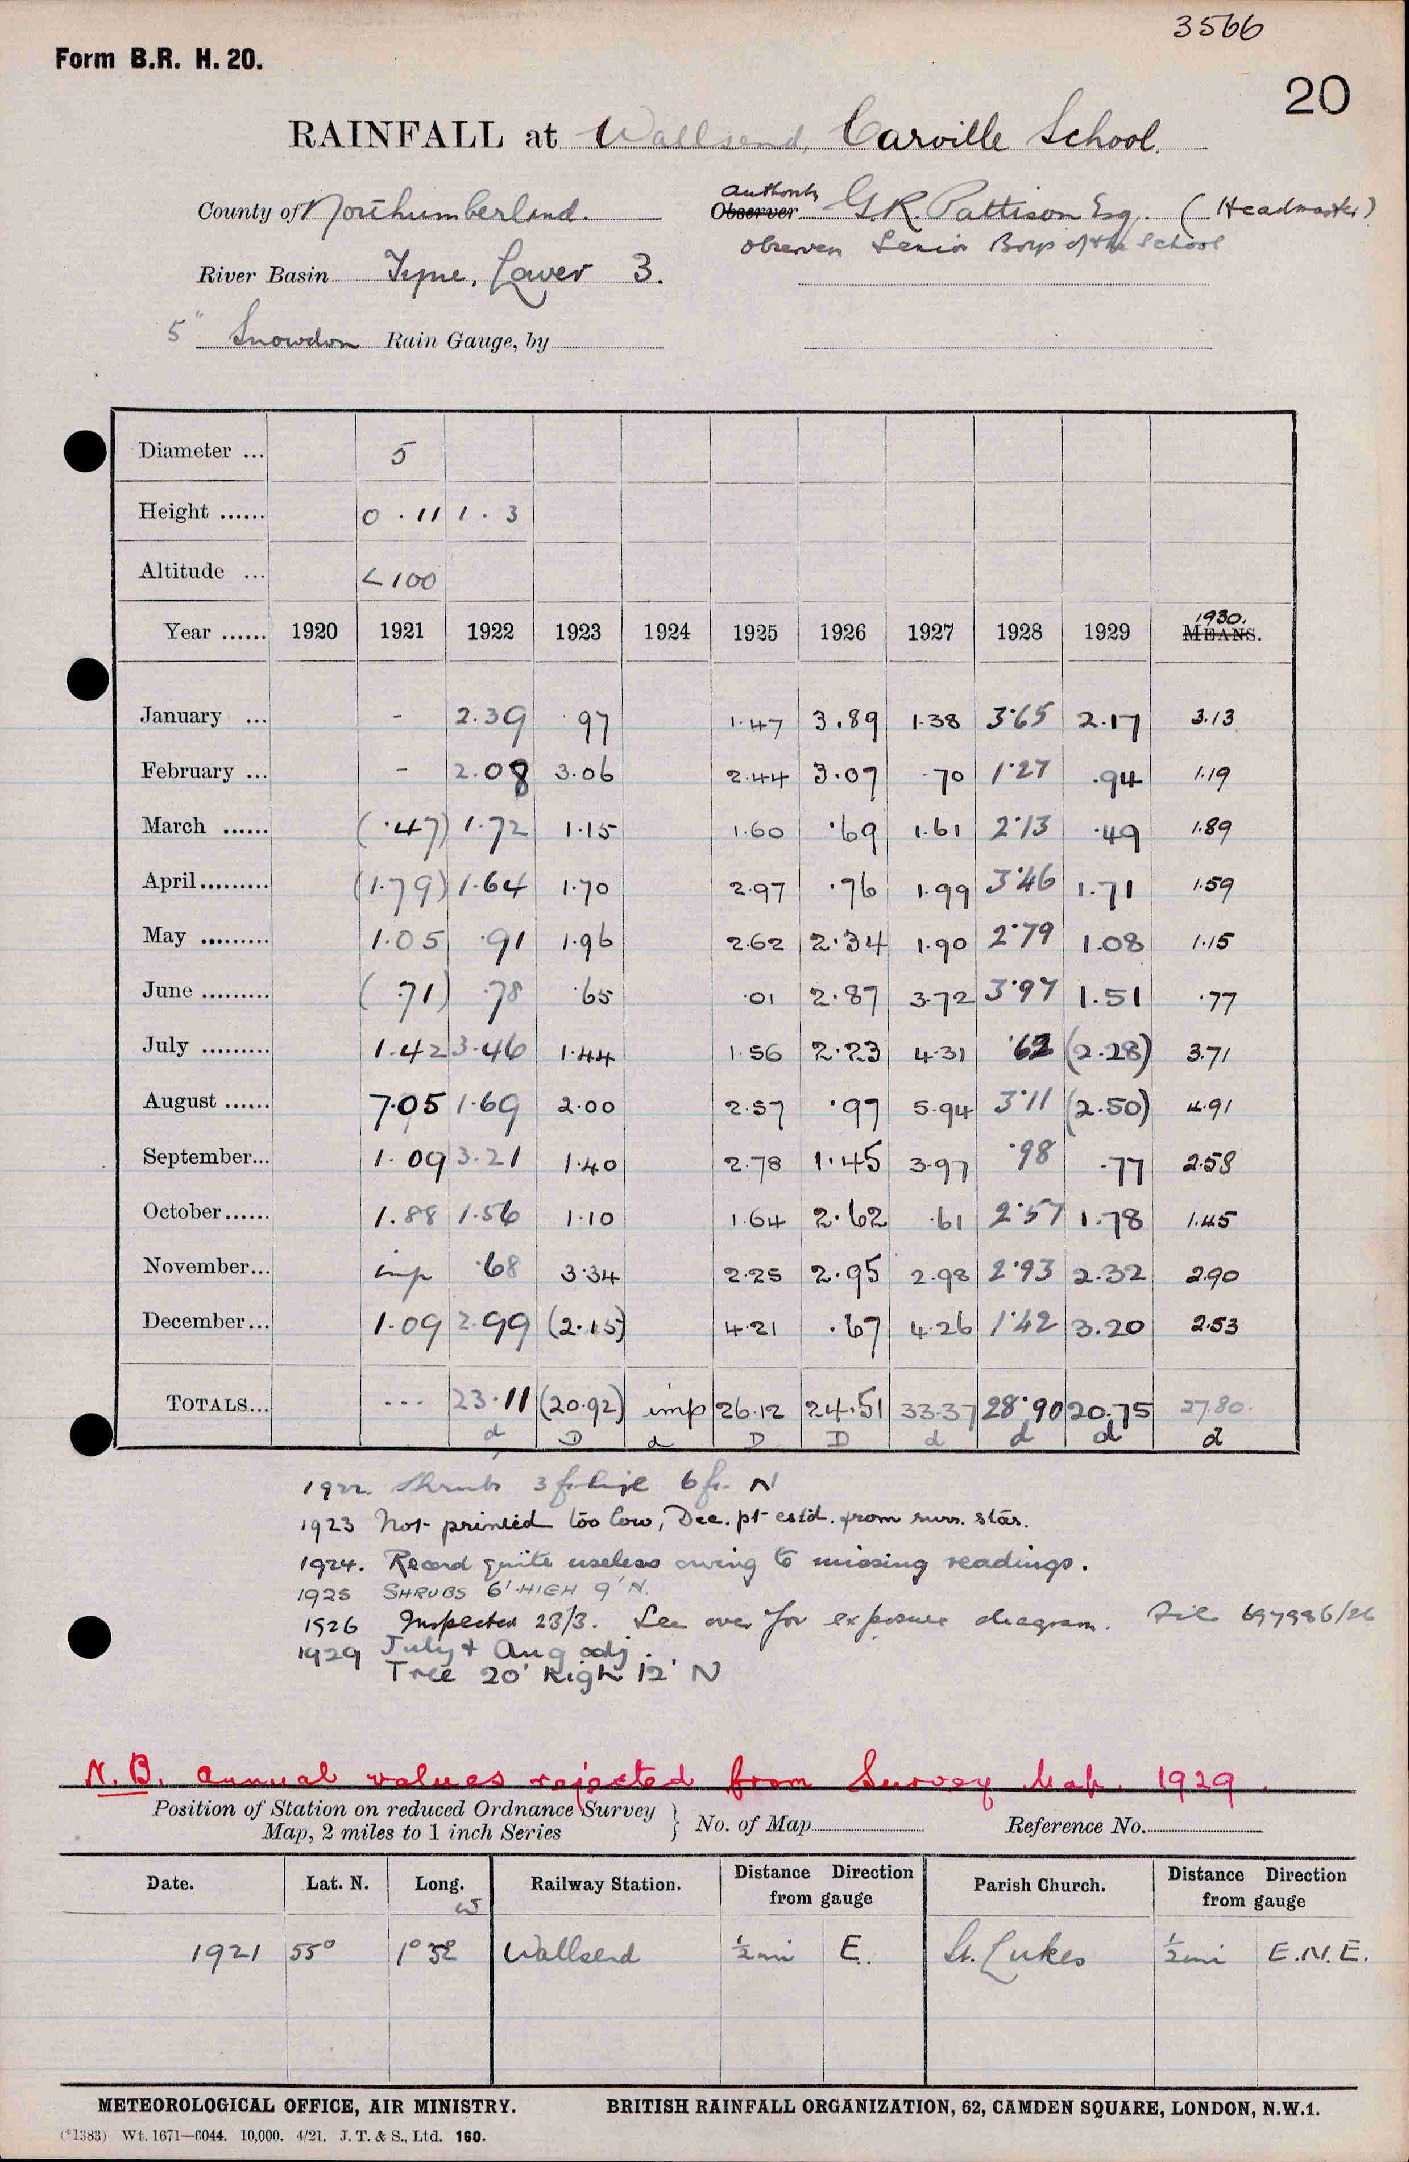 3566
Form B.R. H. 20.
20
RAINFALL at Wallsend, Carville School.
County of Northumberland. Authority Observer G.R. Pattison Esq. (Headmaster)
Observers Senior Boys of the School
River Basin Tyne, Lower 3.
5" Snowdon Rain Gauge, by
Diameter ... 5
Height ...... 0.11 1.3
Altitude ... <100
Year ...... 1920 1921 1922 1923 1924 1925 1926 1927 1928 1929 1930. MEANS.
January ... - 2.39 .97 1.47 3.89 1.38 3.65 2.17 3.13
February ... - 2.08 3.06 2.44 3.07 .70 1.27 .94 1.19
March ...... (.47) 1.72 1.15 1.60 .69 1.61 2.13 .49 1.89
April ......... (1.79) 1.64 1.70 2.97 .76 1.99 3.46 1.71 1.59
May ......... 1.05 .91 1.96 2.62 2.34 1.90 2.79 1.08 1.15
June ......... (.71) .78 .65 .01 2.87 3.72 3.97 1.51 .77
July ......... 1.42 3.46 1.44 1.56 2.23 4.31 .62 (2.28) 3.71
August ...... 7.05 1.69 2.00 2.57 .97 5.94 3.11 (2.50) 4.91
September... 1.09 3.21 1.40 2.78 1.45 3.97 .98 .77 2.58
October...... 1.88 1.56 1.10 1.64 2.62 .61 2.57 1.78 1.45
November... imp .68 3.34 2.25 2.95 2.98 2.93 2.32 2.90
December... 1.09 2.99 (2.15) 4.21 .67 4.26 1.42 3.20 2.53
TOTALS... --- 23.11 (20.92) imp 26.12 24.51 33.37 28.90 20.75 27.80
d D d D D d d d d
1922. Shrubs 3 ft high 6 ft. N
1923 Not printed too low, Dec. pt estd. from surr. stas.
1924. Record quite useless owing to missing readings.
1925 SHRUBS 6' HIGH 9' N.
1926 Inspected 23/3. See over for exposure diagram. File 697986/26
1929 July & Aug adj.
Tree 20' high 12' N
N.B. Annual values rejected from Survey Map. 1929.
Position of Station on reduced Ordnance Survey
Map, 2 miles to 1 inch Series } No. of Map Reference No.
Date. Lat. N. Long. W Railway Station. Distance Direction from gauge Parish Church. Distance Direction from gauge
1921 55° 1° 32 Wallsend ½ mi E. St. Lukes ½ mi E.N.E.
METEOROLOGICAL OFFICE, AIR MINISTRY. BRITISH RAINFALL ORGANIZATION, 62, CAMDEN SQUARE, LONDON, N.W.1.
(*1383) Wt. 1671—6044. 10,000. 4/21. J. T. & S., Ltd. 160.